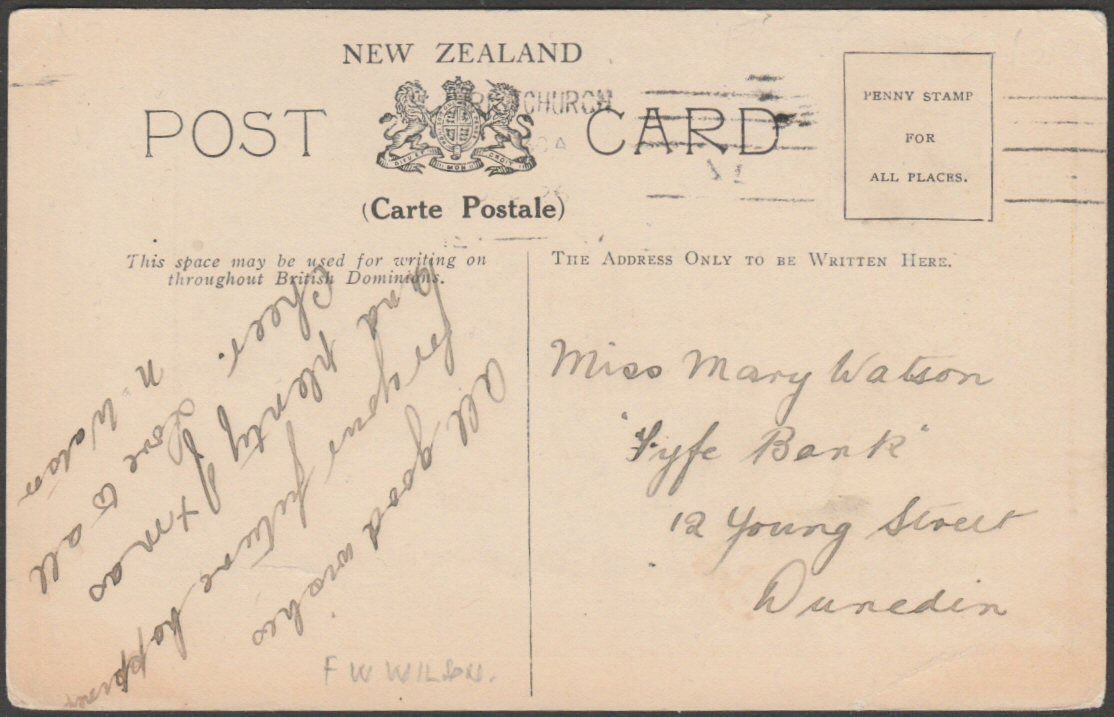 NEW ZEALAND
POST CARD
CHURCH
DIEU ET MON DROIT
(Carte Postale)
PENNY STAMP
FOR
ALL PLACES.
This space may be used for writing on
throughout British Dominions.
THE ADDRESS ONLY TO BE WRITTEN HERE.
All good wishes
for your future happiness
and plenty of Xmas
Cheer.
Love to all
Miss Mary Watson
"Fyfe Bank"
12 Young Street
Dunedin
F W WILSON.